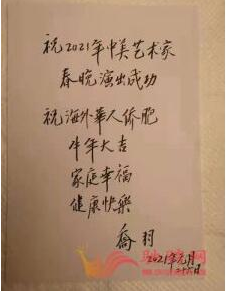 祝2021年中美艺术家
春晚演出成功
祝海外華人侨胞
牛年大吉
家庭幸福
健康快樂
喬羽
2021年元月